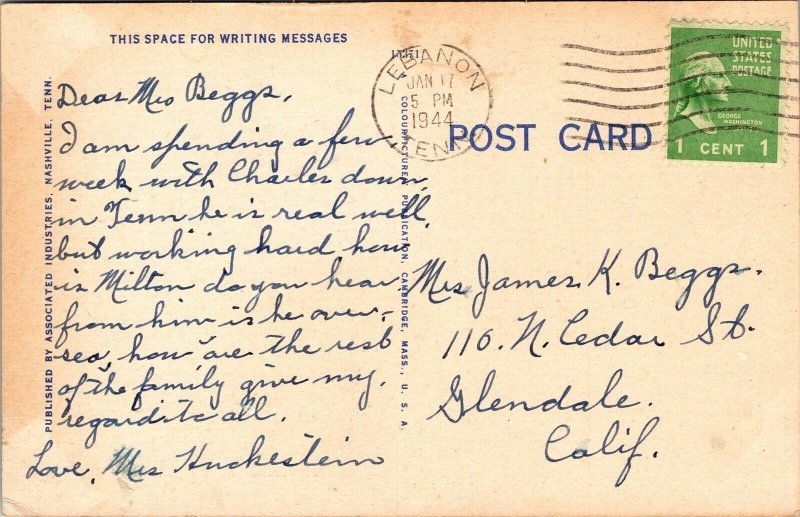 THIS SPACE FOR WRITING MESSAGES
Dear Mrs Beggs,
I am spending a few
week with Charles down
in Tenn he is real well,
but working hard how
is Milton do you hear
from him is he over-
sea, how are the rest
of the family give my,
regards to all.
Love, Mrs Huckestein
PUBLISHED BY ASSOCIATED INDUSTRIES, NASHVILLE, TENN.
COLOURPICTURES PUBLICATION, CAMBRIDGE, MASS., U. S. A.
LEBANON
JAN 17
5 PM
1944
TENN.
POST CARD
UNITED
STATES
POSTAGE
GEORGE
WASHINGTON
1 CENT 1
Mrs James K. Beggs.
116. N. Cedar St.
Glendale.
Calif.